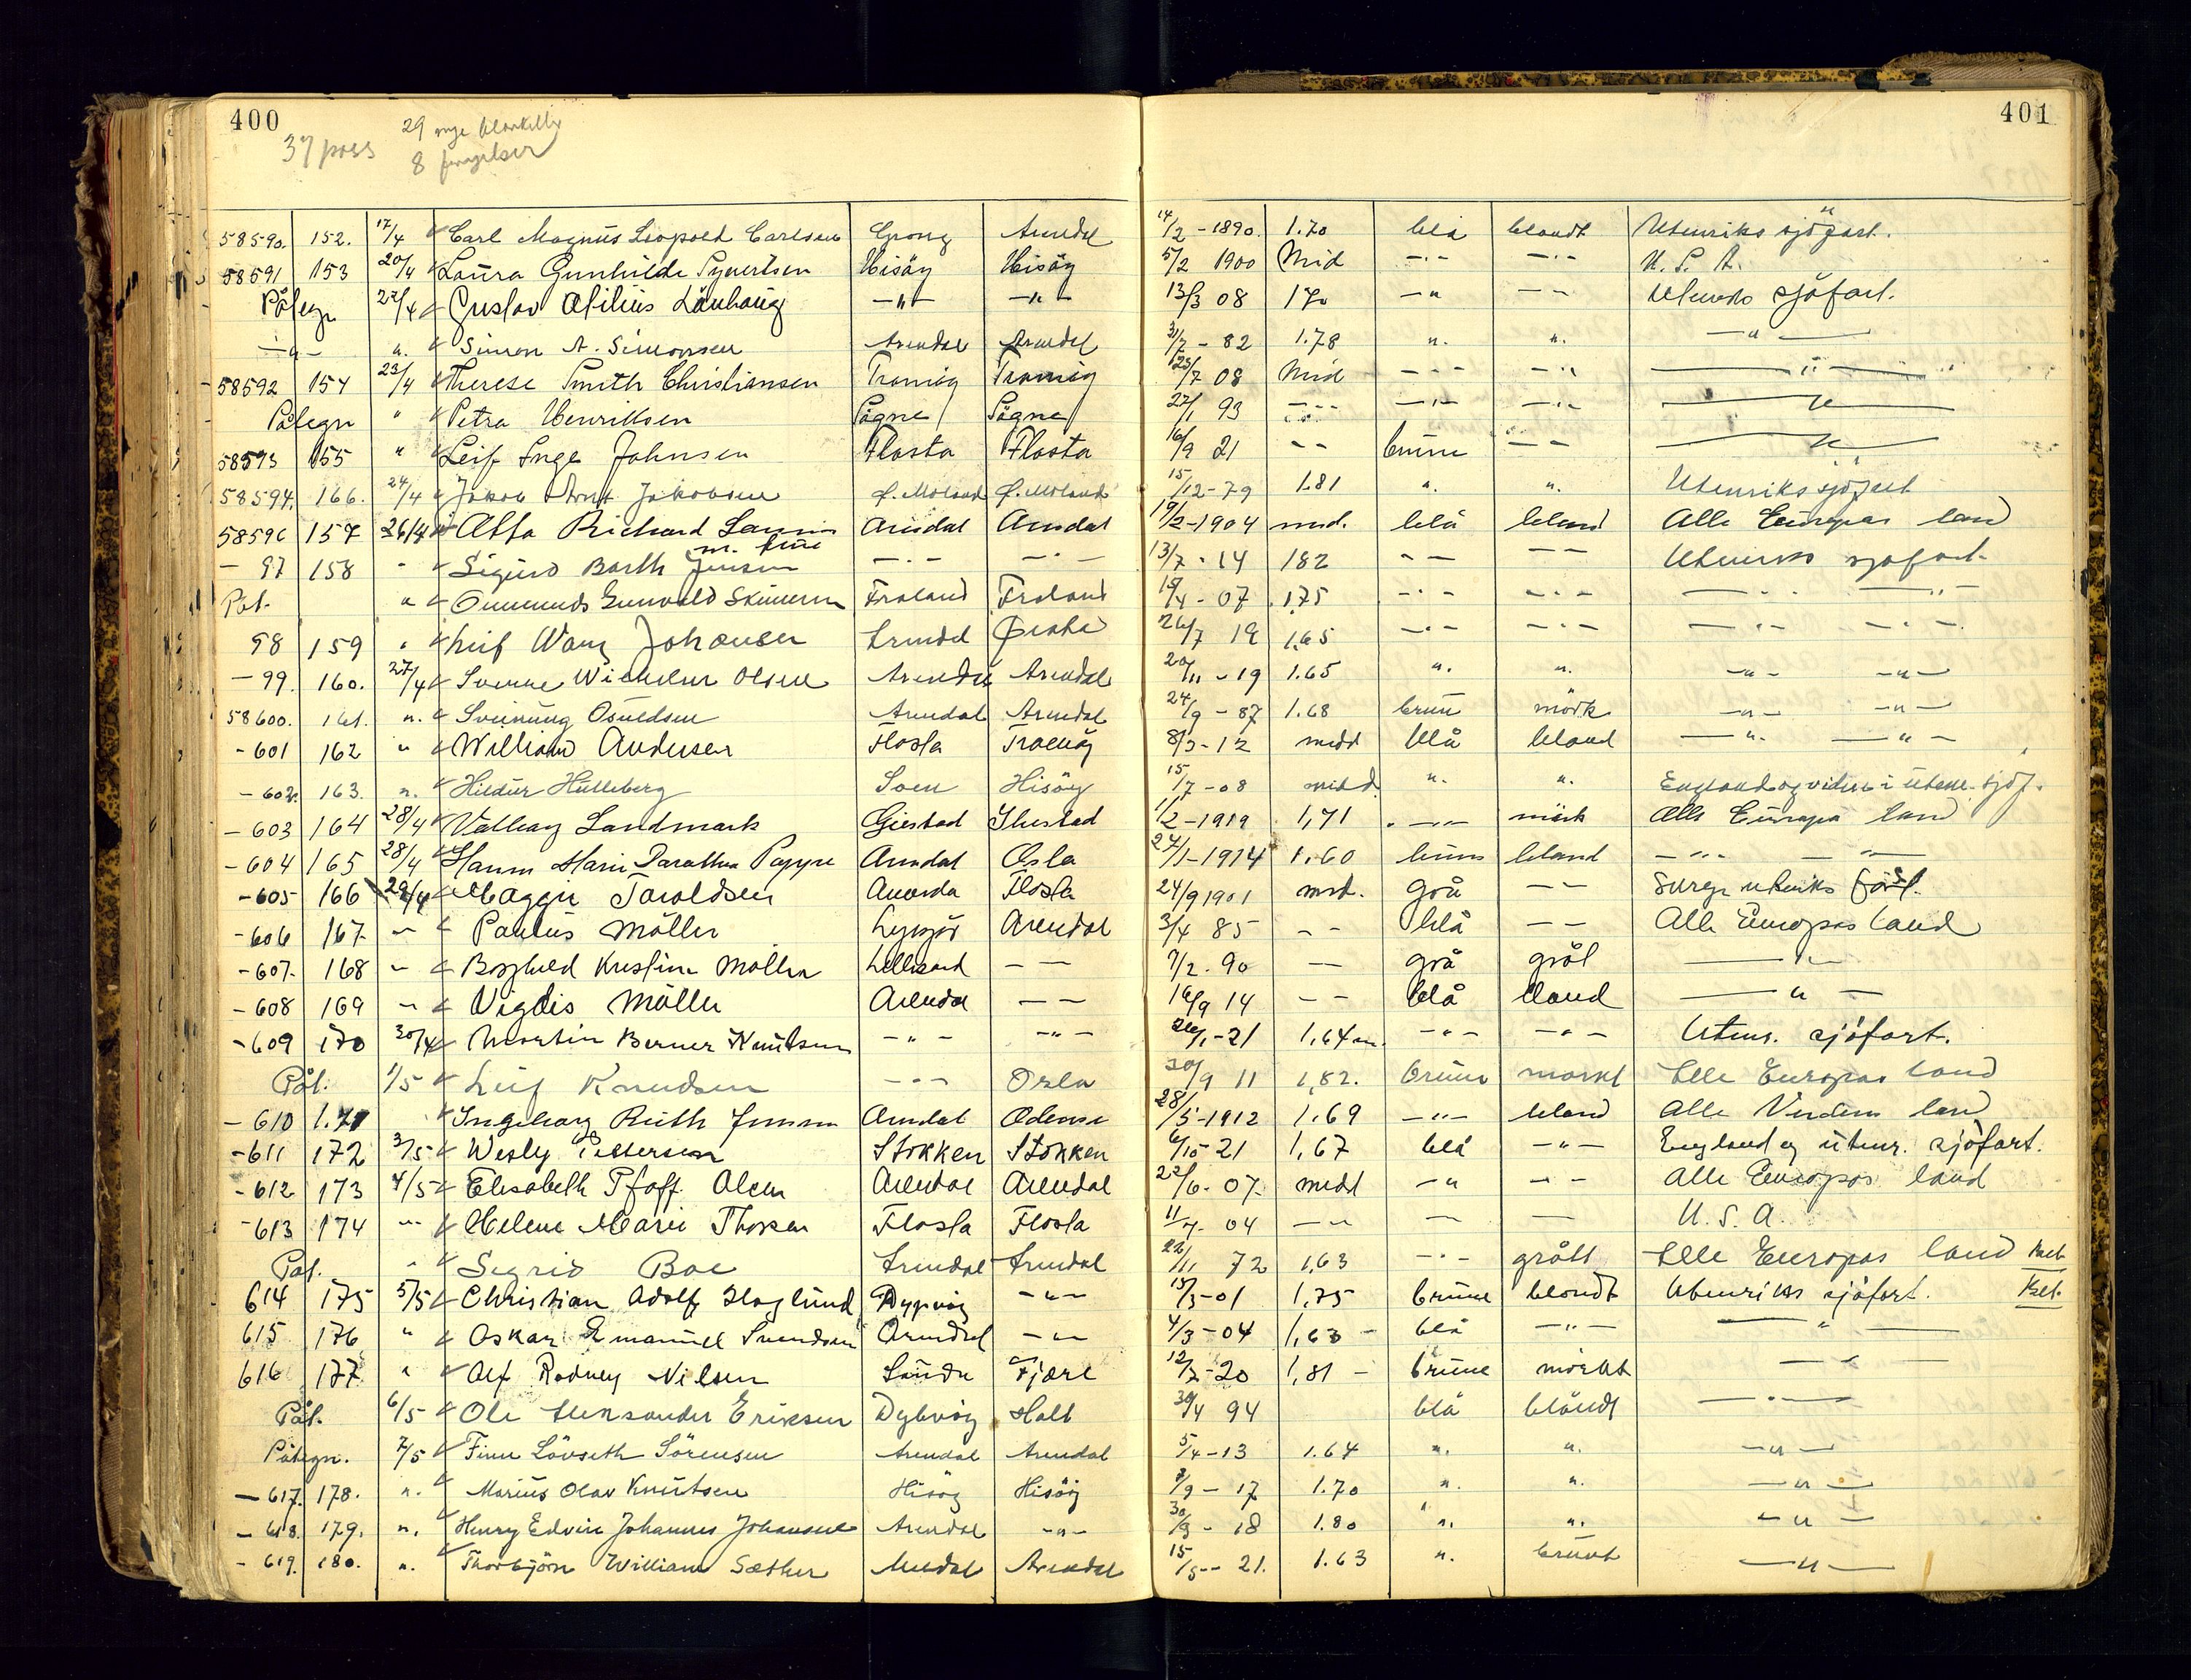 400
401
37 pass
29 nye
8
58590. 152. 17/4 Carl Magnus Leopold Carlsen Grong Arendal 14/2 - 1890. 1.70 blå blondt Utenriks sjöfart.
58591 153 20/4 Laura Gunhilde Syvertsen Hisöy Hisöy 5/2 1900 Mid —·— —·— U. S. A.
Påtegn 22/4 Gustav —"— —"— 13/3 08 170 —" — — sjöfart.
—"— ". Simon A. Simonsen Arendal Arendal 31/7 - 82 1.78 ". ". —"—
58592 154 23/4 Therese Smith Christiansen Tromöy Tromöy 23/7 08 Mid - - - —·— —"—
Påtegn " Petra Henriksen Sögne Sögne 27/1 93 - - - —·— —·— —"—
58593 155 " Leif Inge Johnsen Flosta Flosta 16/9 21 - - brune — — —"—
58594. 166. 24/4 Jakob Jakobsen Ö. Moland Ö. Moland 15/12-79 1.81 ". ". Utenriks sjöfart
58596 157 26/4 Richard Arendal Arendal 19/2-1904 mid. blå blond Alle Europas land
m. frue
- 97 158 " Sigurd Barth Jensen —·— —·— 13/7 - 14 182 — — — — Utenriks sjöfart
Påt. " Gunvald Froland Froland 07 1,75 —·— —·— —"—
98 159 " Leif Wang Johansen Arendal 26/7 19 1,65 —·— —·— —·— —·—
- 99. 160. 27/4 Wilhelm Olsen Arendal Arendal 20/11 - 19 1.65 ". ". —"— —"—
58600. 161. ". Sveinung Osuldsen Arendal Arendal 24/9 - 87 1.68 brun mörk —"— —"—
-601 162 " William Andersen Flosta Tromöy 8/3-12 midd blå blond —"— —"—
- 602. 163. ". Hildur Hulleberg Hisöy 15/7 -08 midd. ". ". England og videre i utenr. sjöf.
- 603 164 28/4 Valborg Landmark Gjestad 1/2-1919 1,71 —"— mörk Alle Europa land
- 604 165 28/4 Marie Arendal Oslo 27/1-1914 1.60 bruns blond —"— —"—
-605 166 29/4 Maggie Taroldsen Arendal Flosta 24/9 1901 mid. grå — —
-606 167 " Paulus Möller Lyngör Arendal 3/4 85 - - blå — — Alle Europas land
-607. 168 " Borghild Kristine Möller Lillesand — — 7/2. 90 — grå grål —"—
-608 169 " Vigdis Möller Arendal — — 16/9 14 - - blå blond —"—
-609 170 30/4 Martin Berner Knutsen —"— —"— 26/1-21 1,64 m. —"— —"— Utenr. sjöfart.
Påt. 1/5 Leif Knudsen —"— Oslo 30/9 11 1,82. brune mörkt Alle Europas land
- 610 1.71 Ingeborg Ruth Arendal Odense 28/5-1912 1.69 —"— blond Alle Verdens land
-611 172 3/5 Wesly Pettersen Stokken Stokken 6/10-21 1,67 blå —"— England og utenr. sjöfart.
-612 173 4/5 Elisabeth Pfaff Olsen Arendal Arendal 22/6. 07. midd —" — — Alle Europas land
-613 174 " Helene Marie Flosta Flosta 11/7. 04 — — — — U. S. A.
Påt. " Sigrid Boe Arendal Arendal 22/11 72 1,63 —·— grått Alle Europas land
614 175 5/5 Christian Adolf Haglund Dypvåg —"— 15/3-01 1,75 brune blondt Utenriks sjöfart.
615 176 " Oskar Emanuel Svendsen Arendal —"— 4/3-04 1,63 - blå —"— —"—
616 177. " Alf Rodney Nilsen Sande Fjære 12/7-20 1,81 - brune mörkt —"—
Påt. 6/5 Ole Aleksander Eriksen Dybvåg Holt 30/4 94 blå blondt —"—
Påtegn. 7/5 Finn Lövseth Sörensen Arendal Arendal 5/4-13 1.64 ". ". —"—
- 617. 178. ". Marius Olav Knutsen Hisöy Hisöy 7/9 - 17 1.70 ". ". —"—
- 618. 179. ". Henry Edvin Johannes Johansen Arendal —"— 30/3 - 18 1.80 ". ". —"—
- 619. 180. ". Thorbjörn William Sæther Arendal Arendal 15/5 - 21. 1.63 ". brunt —"—